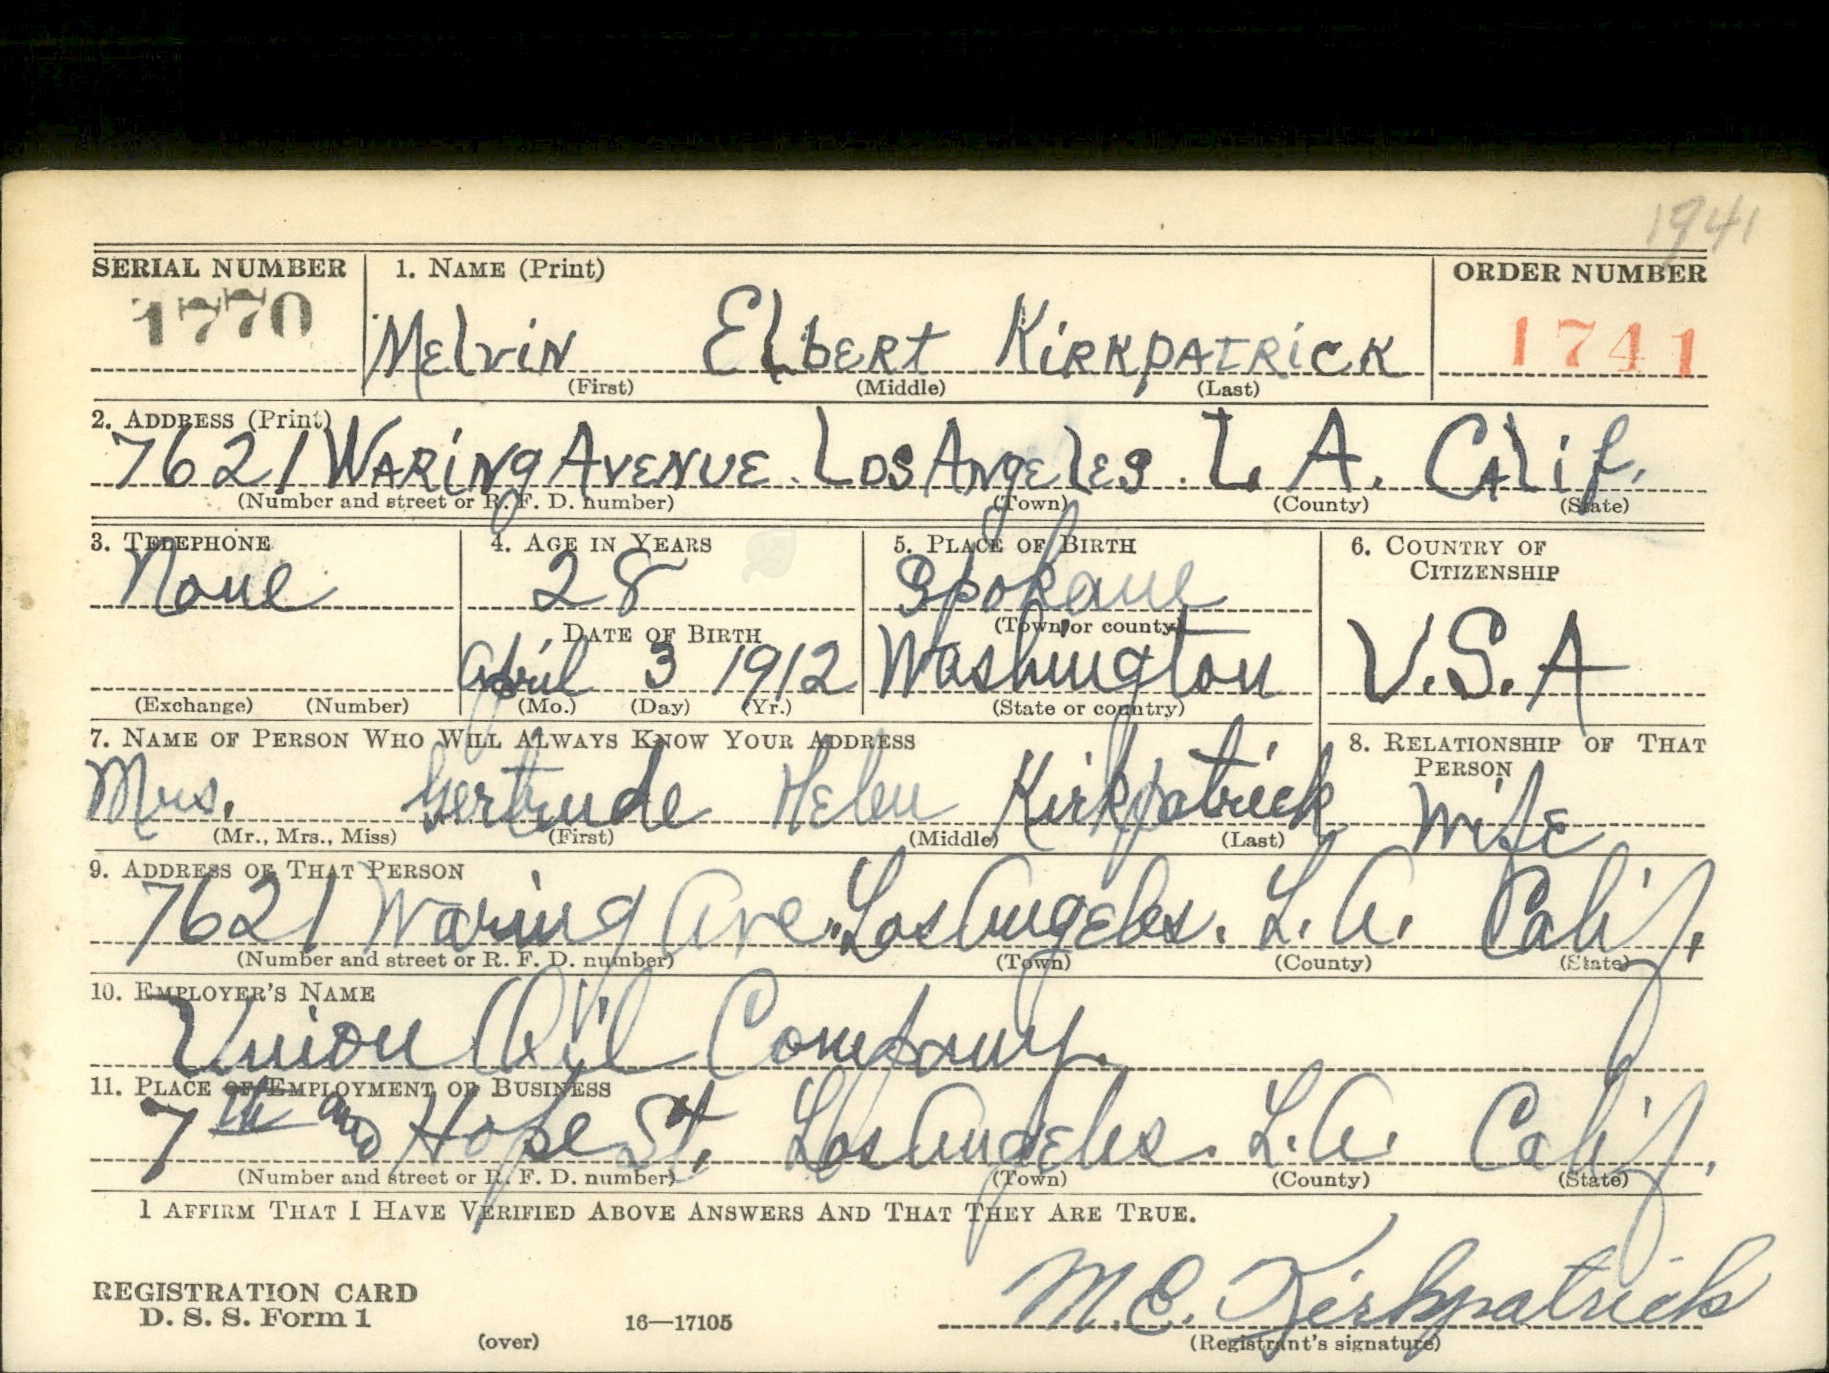 1941
SERIAL NUMBER 1. NAME (Print) ORDER NUMBER
1770 Melvin Elbert Kirkpatrick 1741
(First) (Middle) (Last)
2. ADDRESS (Print)
7621 Waring Avenue. Los Angeles. L. A. Calif.
(Number and street or R. F. D. number) (Town) (County) (State)
3. TELEPHONE 4. AGE IN YEARS 5. PLACE OF BIRTH 6. COUNTRY OF CITIZENSHIP
None 28 Spokane
(Town or county)
DATE OF BIRTH
April 3 1912 Washington U.S.A
(Exchange) (Number) (Mo.) (Day) (Yr.) (State or country)
7. NAME OF PERSON WHO WILL ALWAYS KNOW YOUR ADDRESS 8. RELATIONSHIP OF THAT PERSON
Mrs. Gertrude Helen Kirkpatrick Wife
(Mr., Mrs., Miss) (First) (Middle) (Last)
9. ADDRESS OF THAT PERSON
7621 Waring Ave. Los Angeles. L. A. Calif.
(Number and street or R. F. D. number) (Town) (County) (State)
10. EMPLOYER'S NAME
Union Oil Company.
11. PLACE OF EMPLOYMENT OR BUSINESS
7th and Hope St. Los Angeles. L. A. Calif.
(Number and street or R. F. D. number) (Town) (County) (State)
I AFFIRM THAT I HAVE VERIFIED ABOVE ANSWERS AND THAT THEY ARE TRUE.
REGISTRATION CARD
D. S. S. Form 1 16—17105 M. E. Kirkpatrick
(over) (Registrant's signature)